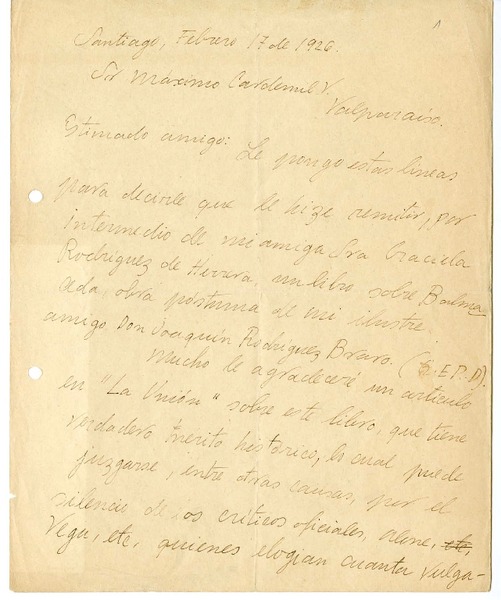 Santiago, Febrero 17 de 1926.
Sr Maximo Cardemil V.
Valparaíso.
Estimado amigo:
Le pongo estas lineas
para decirle que le hize remitir, por
intermedio de mi amiga Sra Graciela
Rodriguez de Herrera, un libro sobre Balma
ceda, obra póstuma de mi ilustre
amigo Don Joaquín Rodríguez Bravo. (Q.E.P.D).
Mucho le agradeceré un artículo
en "La Unión" sobre este libro, que tiene
verdadero mérito histórico, lo cual puede
juzgarse, entre otras causas, por el
silencio de los críticos oficiales, Alone, etc,
Vega, etc, quienes elogian cuanta vulga-